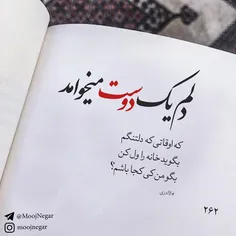 دلم یک دوست میخواهد
که اوقاتی که دلتنگم
بگوید خانه را ول کن
بگو من کی کجا باشم؟
۲۶۲
@MoojNegar
moojnegar